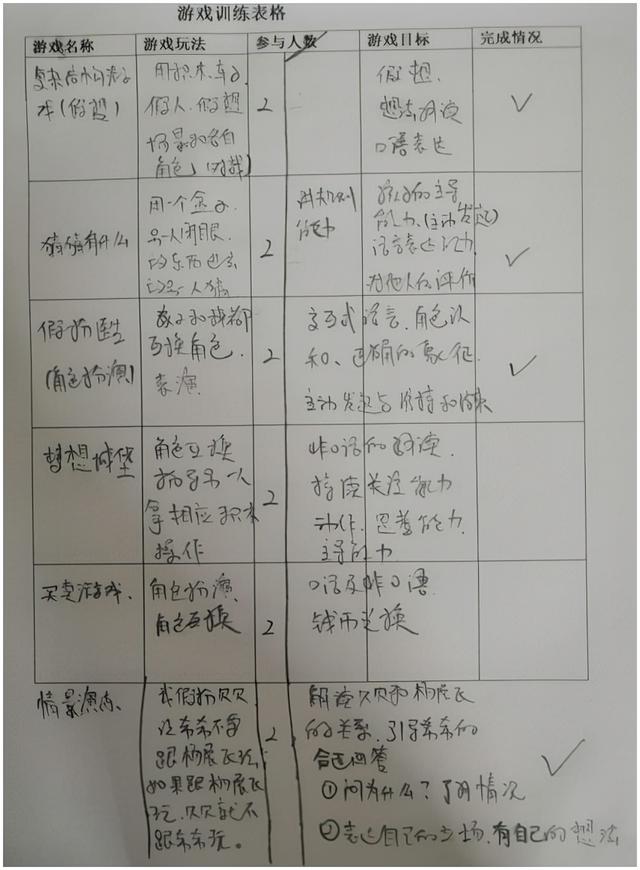 游戏训练表格
游戏名称 游戏玩法 参与人数 游戏目标 完成情况
复杂结构
木(假想)
用积木,车子,
假人,假想
场景和各自
角色,(对戏)
2
假想,
想法解读
口语表达
猜猜有什么
用一个盒子.
另一人闭眼.
让另一人猜
2
能力
孩子的主导
能力(主动发起)
语言表达能力
对他人的评价
假扮医生
(角色扮演)
孩子和我都
互换角色.
表演
2
交互式语言、角色认
知、正确的象征.
主动发起与维持和结束
梦想城堡
角色互换
指导另一人
拿相应积木
操作
2
非口语的解读.
持续关注能力
动作、思养能力.
主导能力
买卖游戏、
角色扮演,
角色互换
2
口语及非口语
钱币兑换
情景演练、
我假扮欠欠
让希希不要
跟杨展飞玩,
如果跟杨展飞
玩.欠欠就不
跟希希玩。
2
解读欠欠和杨展飞
的关系,引导希希的
合适回答
①问为什么?了解情况
②表达自己的立场.有自己的想法